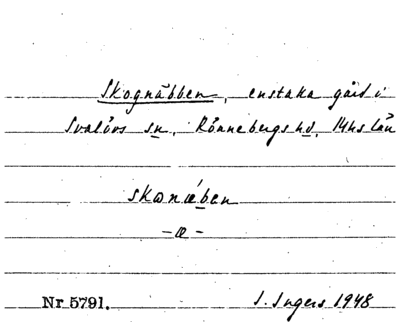 Skognäbben, enstaka gård i
Svalövs sn, Rönnebergs hd, Mhs län
skωnǽben
-æ-
Nr 5791. I. Ingers 1948